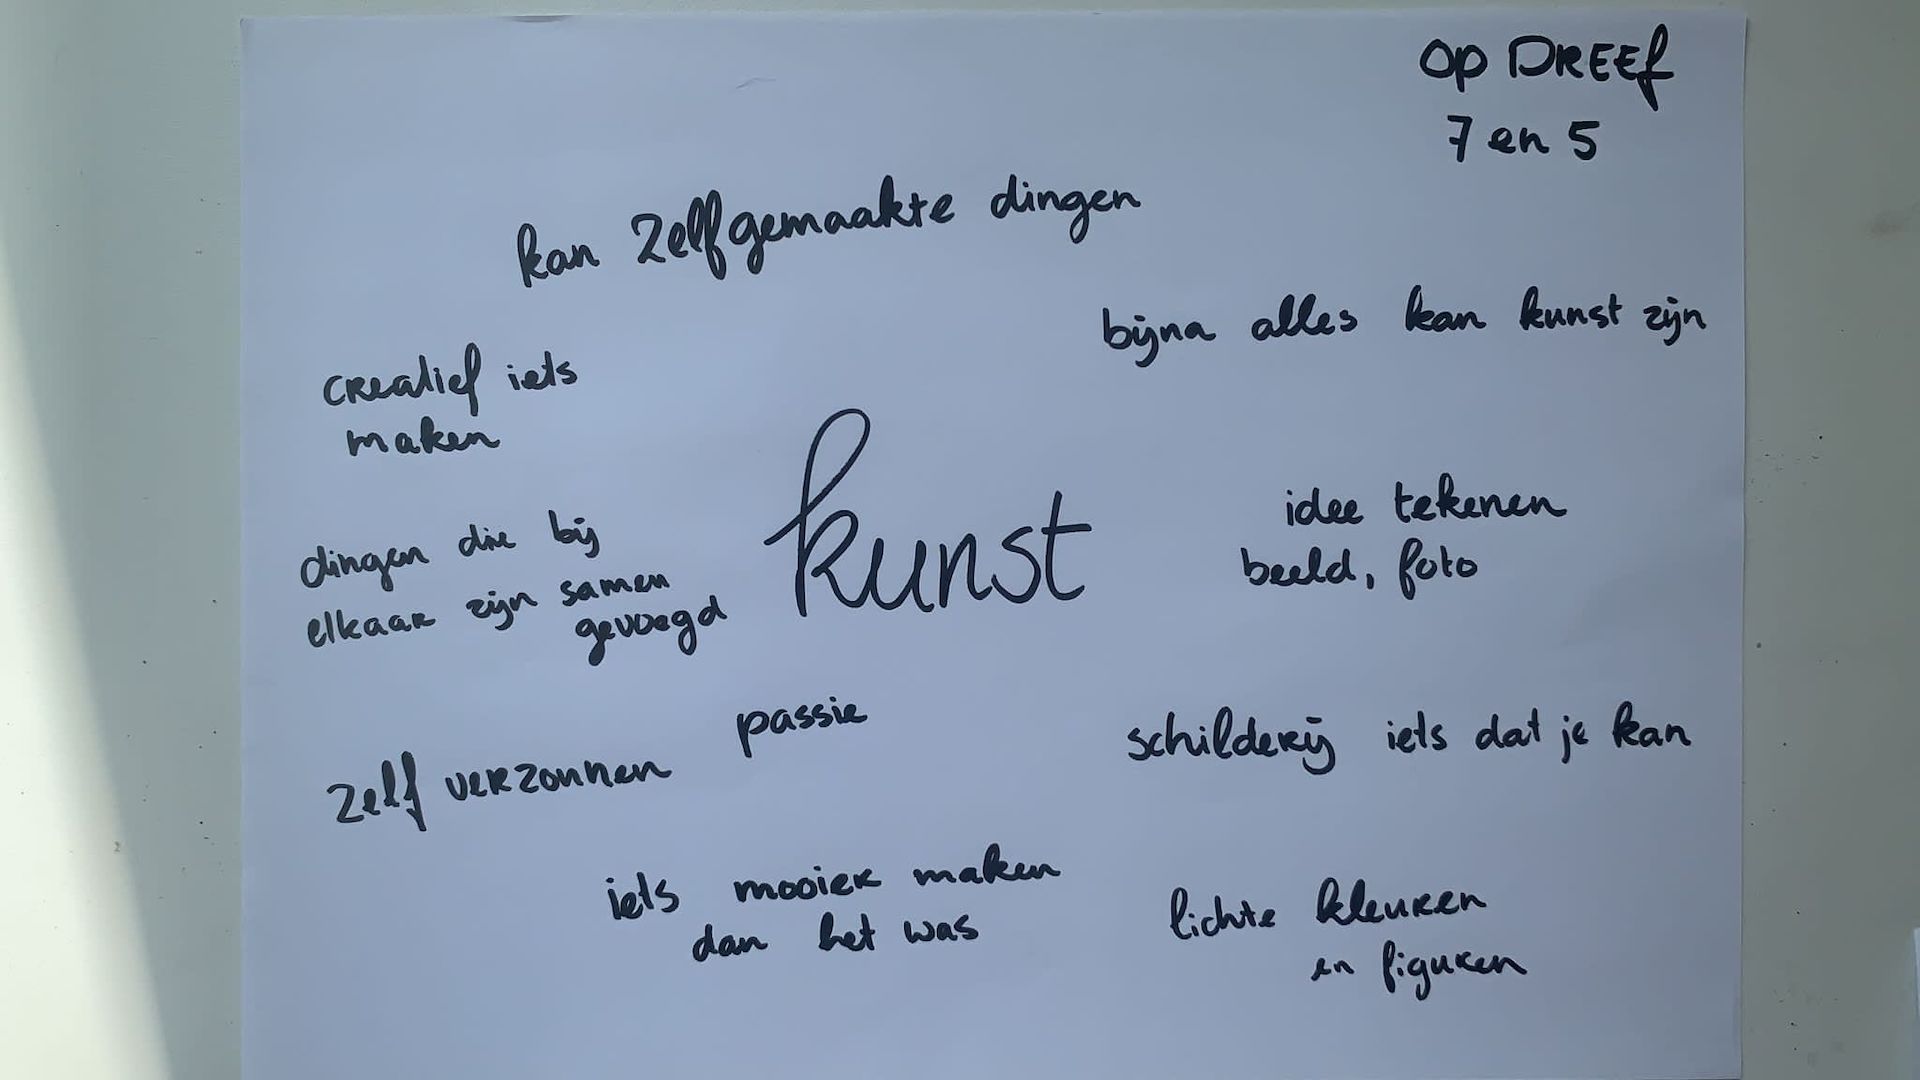 Op DREEf
7 en 5
kan zelfgemaakte dingen
bijna alles kan kunst zijn
creatief iets
maken
kunst
idee tekenen
beeld, foto
dingen die bij
elkaar zijn samen
gevoegd
passie
schilderij iets dat je kan
zelf verzonnen
iets mooier maken
dan het was
lichte kleuren
en figuren